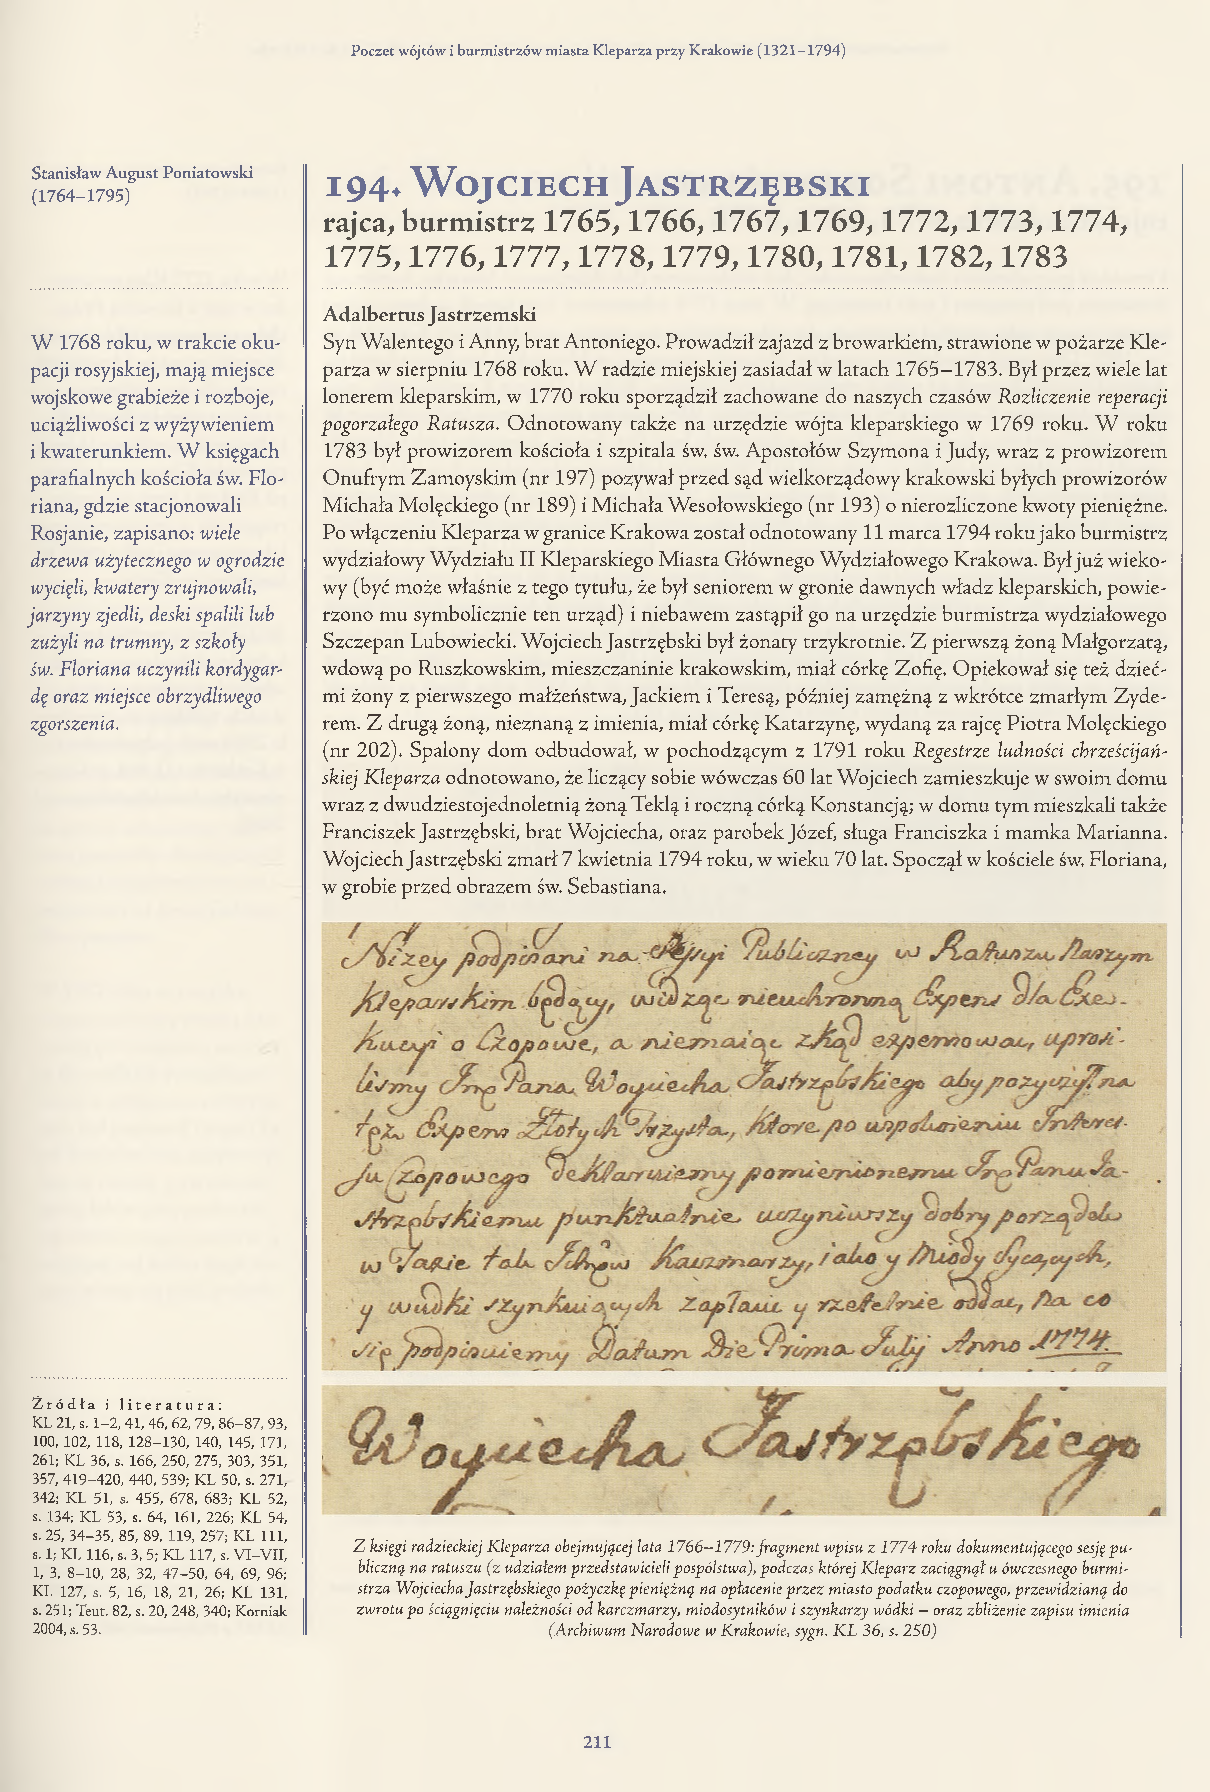 Poczet wójtów i burmistrzów miasta Kleparza przy Krakowie (1321–1794)
Stanisław August Poniatowski
(1764–1795)
W 1768 roku, w trakcie oku-
pacji rosyjskiej, mają miejsce
wojskowe grabieże i rozboje,
uciążliwości z wyżywieniem
i kwaterunkiem. W księgach
parafialnych kościoła św. Flo-
riana, gdzie stacjonowali
Rosjanie, zapisano: wiele
drzewa użytecznego w ogrodzie
wycięli, kwatery zrujnowali,
jarzyny zjedli, deski spalili lub
zużyli na trumny, z szkoły
św. Floriana uczynili kordygar-
dę oraz miejsce obrzydliwego
zgorszenia.
Źródła i literatura:
KL 21, s. 1–2, 41, 46, 62, 79, 86–87, 93,
100, 102, 118, 128–130, 140, 145, 171,
261; KL 36, s. 166, 250, 275, 303, 351,
357, 419–420, 440, 539; KL 50, s. 271,
342; KL 51, s. 455, 678, 683; KL 52,
s. 134; KL 53, s. 64, 161, 226; KL 54,
s. 25, 34–35, 85, 89, 119, 257; KL 111,
s. 1; KL 116, s. 3, 5; KL 117, s. VI–VII,
1, 3, 8–10, 28, 32, 47–50, 64, 69, 96;
KL 127, s. 5, 16, 18, 21, 26; KL 131,
s. 251; Teut. 82, s. 20, 248, 340; Korniak
2004, s. 53.
194. Wojciech Jastrzębski
rajca, burmistrz 1765, 1766, 1767, 1769, 1772, 1773, 1774,
1775, 1776, 1777, 1778, 1779, 1780, 1781, 1782, 1783
Adalbertus Jastrzemski
Syn Walentego i Anny, brat Antoniego. Prowadził zajazd z browarkiem, strawione w pożarze Kle-
parza w sierpniu 1768 roku. W radzie miejskiej zasiadał w latach 1765–1783. Był przez wiele lat
lonerem kleparskim, w 1770 roku sporządził zachowane do naszych czasów Rozliczenie reperacji
pogorzałego Ratusza. Odnotowany także na urzędzie wójta kleparskiego w 1769 roku. W roku
1783 był prowizorem kościoła i szpitala św. św. Apostołów Szymona i Judy, wraz z prowizorem
Onufrym Zamoyskim (nr 197) pozywał przed sąd wielkorządowy krakowski byłych prowizorów
Michała Molęckiego (nr 189) i Michała Wesołowskiego (nr 193) o nierozliczone kwoty pieniężne.
Po włączeniu Kleparza w granice Krakowa został odnotowany 11 marca 1794 roku jako burmistrz
wydziałowy Wydziału II Kleparskiego Miasta Głównego Wydziałowego Krakowa. Był już wieko-
wy (być może właśnie z tego tytułu, że był seniorem w gronie dawnych władz kleparskich, powie-
rzono mu symbolicznie ten urząd) i niebawem zastąpił go na urzędzie burmistrza wydziałowego
Szczepan Lubowiecki. Wojciech Jastrzębski był żonaty trzykrotnie. Z pierwszą żoną Małgorzatą,
wdową po Ruszkowskim, mieszczaninie krakowskim, miał córkę Zofię. Opiekował się też dzieć-
mi żony z pierwszego małżeństwa, Jackiem i Teresą, później zamężną z wkrótce zmarłym Zyde-
rem. Z drugą żoną, nieznaną z imienia, miał córkę Katarzynę, wydaną za rajcę Piotra Molęckiego
(nr 202). Spalony dom odbudował, w pochodzącym z 1791 roku Regestrze ludności chrześcijań-
skiej Kleparza odnotowano, że liczący sobie wówczas 60 lat Wojciech zamieszkuje w swoim domu
wraz z dwudziestojednoletnią żoną Teklą i roczną córką Konstancją; w domu tym mieszkali także
Franciszek Jastrzębski, brat Wojciecha, oraz parobek Józef, sługa Franciszka i mamka Marianna.
Wojciech Jastrzębski zmarł 7 kwietnia 1794 roku, w wieku 70 lat. Spoczął w kościele św. Floriana,
w grobie przed obrazem św. Sebastiana.
Nizey podpisani na Sessyi Publiczney w Ratuszu Naszym
Kleparskim będący, widząc nieuchronną Expens dla Exe-
kucyi o Czopowe, a niemaiąc zkąd expensowac, uprosi-
lismy Jmę Pana Woyciecha Jastrzębskiego aby pozyczył na
tęż Expens Złotych Trzysta, ktore po uspokoieniu Interes-
su Czopowego deklaruiemy pomienionemu Jmę Panu Ja-
strzębskiemu punktualnie uczyniwszy dobry porządek
w Taxie tak Kaczmarzy, iako y Miody Sycących,
y wudki szynkuiących zapłacic y rzetelnie oddac, Na co
się podpisuiemy Datum Die Prima July Anno 1774.
Woyciecha Jastrzębskiego
Z księgi radzieckiej Kleparza obejmującej lata 1766–1779: fragment wpisu z 1774 roku dokumentującego sesję pu-
bliczną na ratuszu (z udziałem przedstawicieli pospólstwa), podczas której Kleparz zaciągnął u ówczesnego burmi-
strza Wojciecha Jastrzębskiego pożyczkę pieniężną na opłacenie przez miasto podatku czopowego, przewidzianą do
zwrotu po ściągnięciu należności od karczmarzy, miodosytników i szynkarzy wódki – oraz zbliżenie zapisu imienia
(Archiwum Narodowe w Krakowie, sygn. KL 36, s. 250)
211